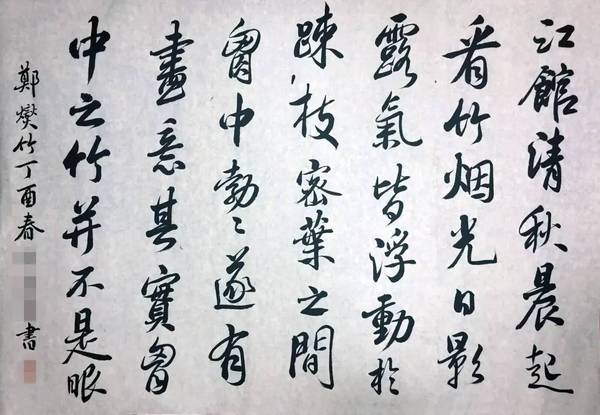 江館清秋晨起
看竹烟光日影
露氣皆浮動於
疎枝密葉之間
胷中勃〻遂有
畫意其實胷
中之竹并不是眼
鄭燮竹丁酉春 書